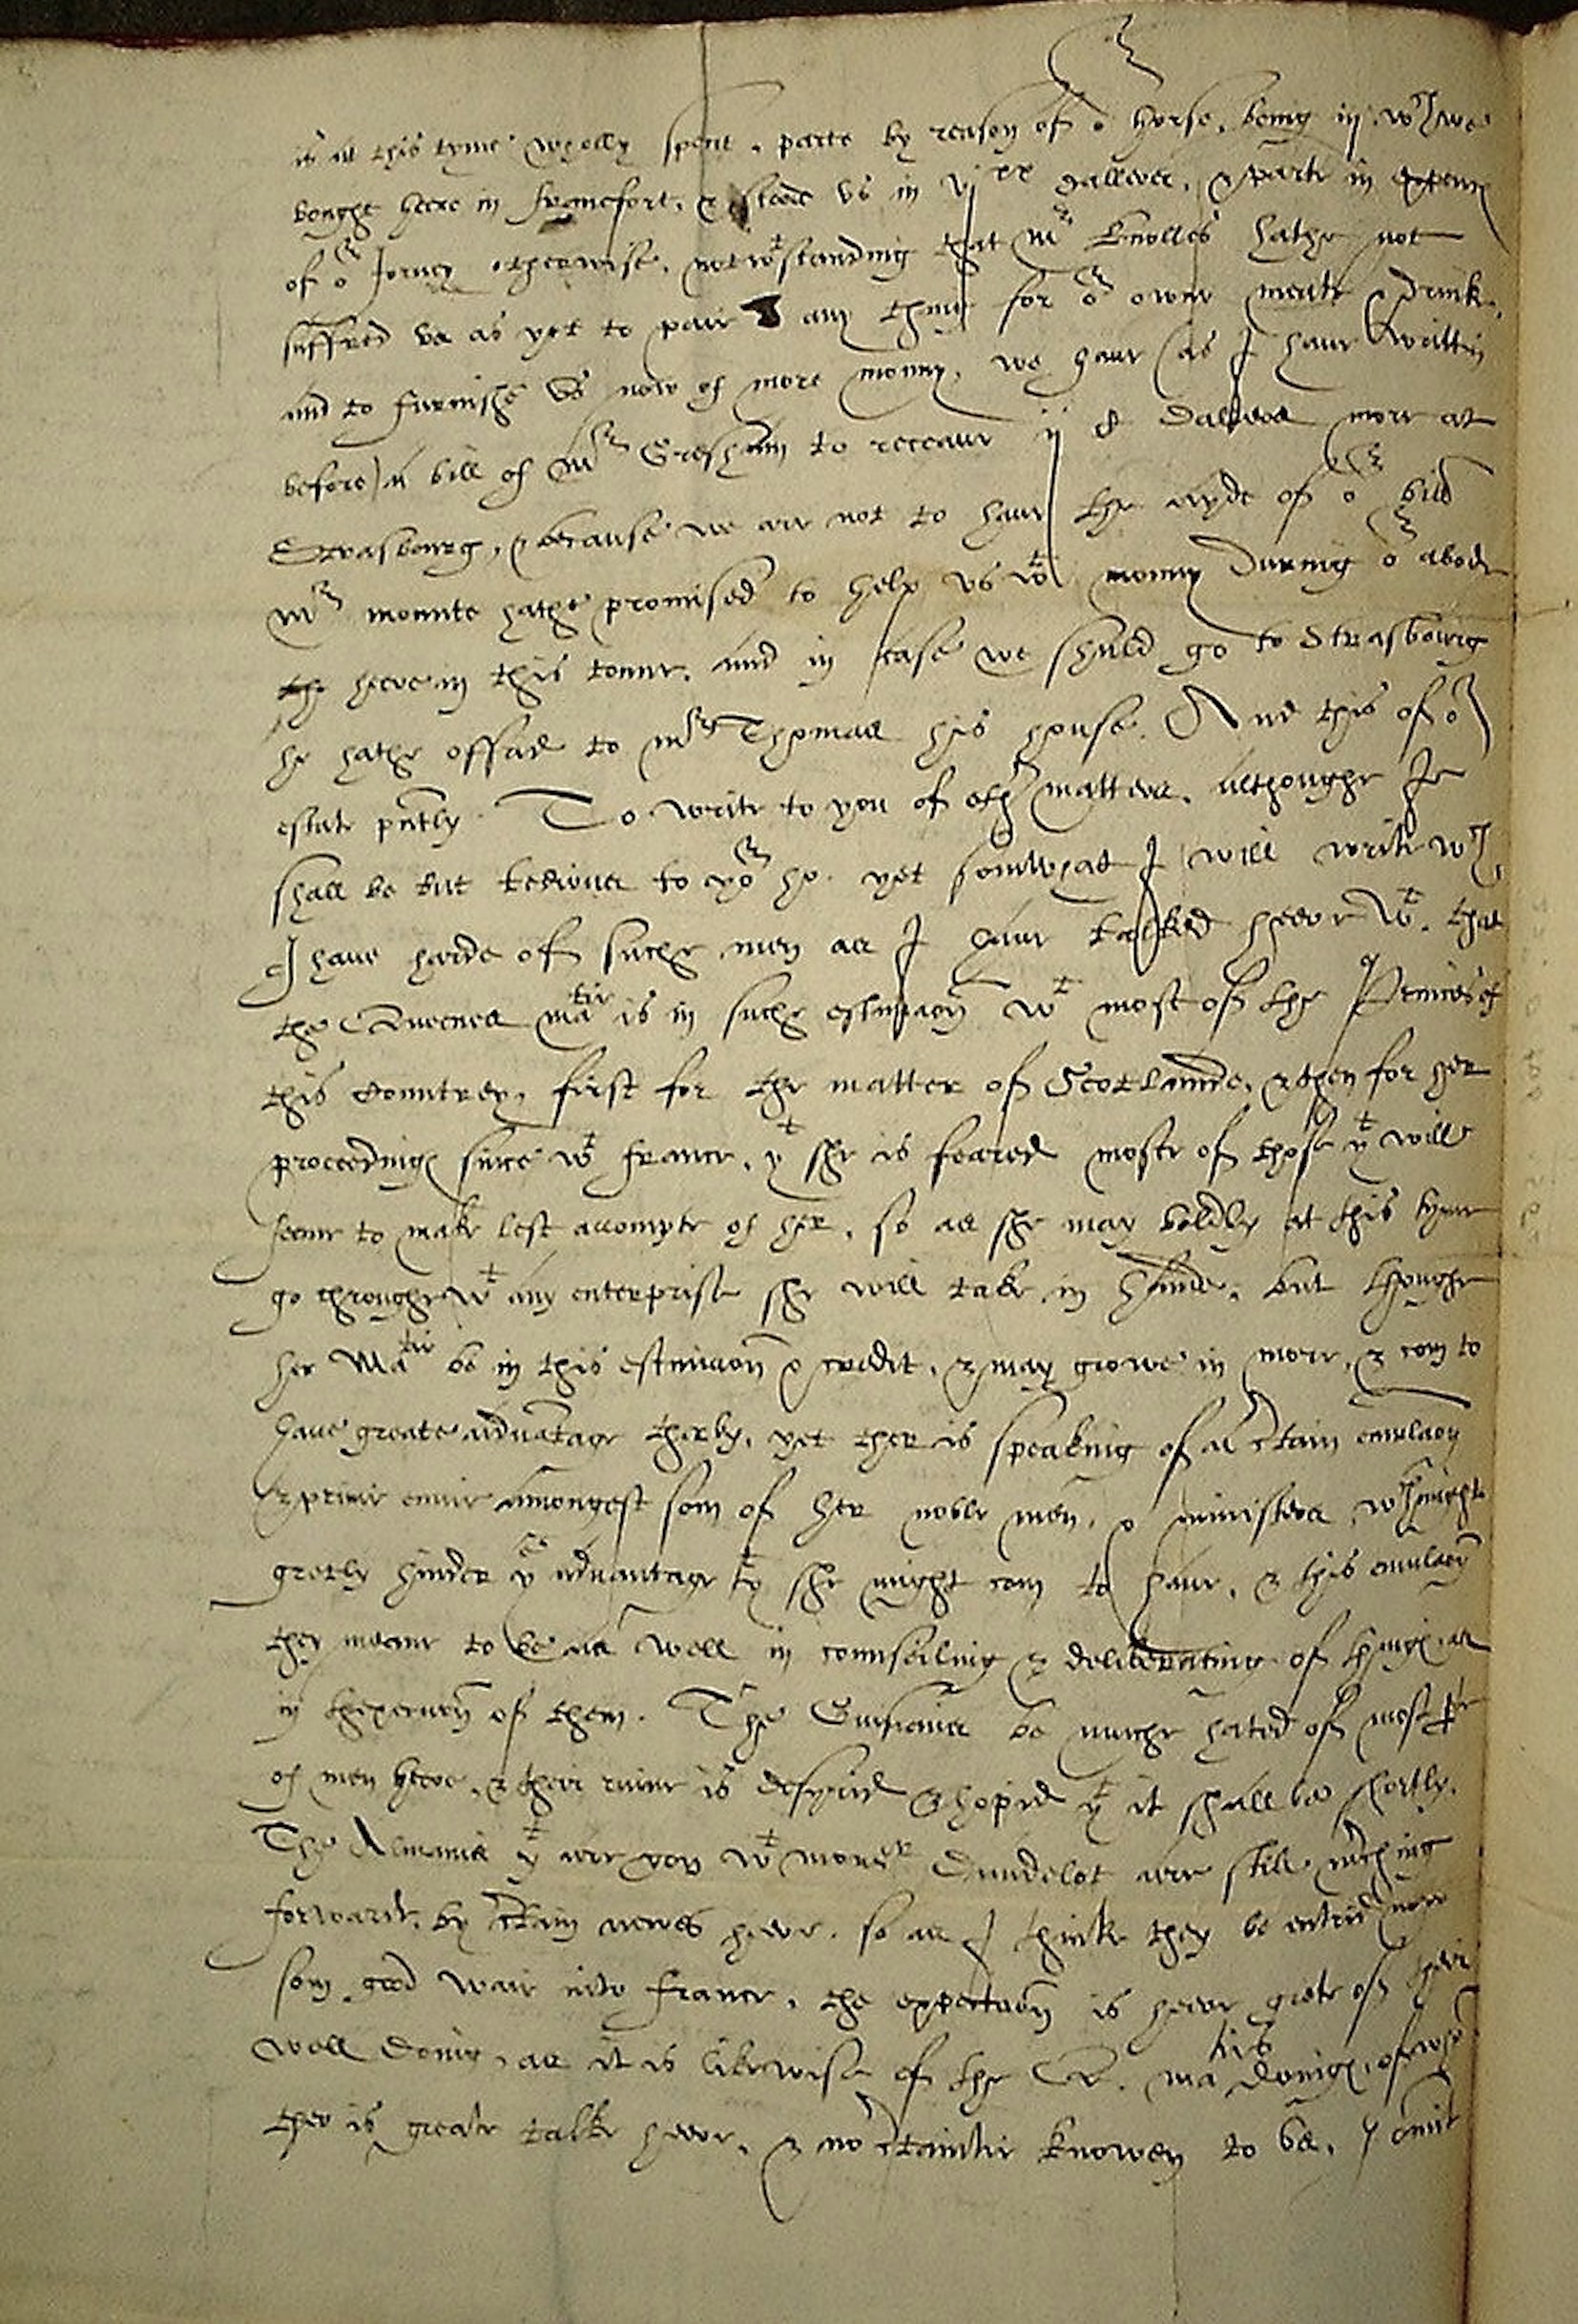 is at this tyme wholly spent, parte by reason of or horse, being iij wch we
bought heere in Francfort, & stode vs in vjxx Dallers, & parte in expenc
of or Jorney otherwise, notwtstanding that mr Knolles hathe not
suffred vs as yet to paie any thing for or owne meate & drink,
and to furnishe vs now of more monny, we haue (as I haue written
before) a bill of Mr Gresham to receaue ij C Dallers more at
Strasbourg, & because we are not to haue the ayde of or bill
mr mounte hathe promised to help vs wt monny during or abode
the heere in this towne. and in case we shuld go to Strasbourg
he hathe offred to mr Thomas his house. And this of or
estate pntly. To write to you of other matters, althoughe It
shall be but tedious to yor ho. yet somwhat I will write wch
I haue harde of suche men as I haue talked heere wt. that
the Queenes matie is in suche estimacon wt most of the Princes of
this Countrey, first for the matter of Scotlande, & then for her
proceedings since wt France, yt she is feared moste of those yt will
seeme to make lest accompte of her, so as she may boldly at this tyme
go throughe wt any enterprise she will take in hande. but thoughe
her Matie be in this estimacon & credit, & may growe in more, & com to
haue greate aduantage therby, yet ther is speaking of a certain emulacon
& priuie enuie amongest som of her noble men, & ministers, wch might
gretly hinder ye aduantage yt she might com to haue, & this emulacon
they meane to be as well in counseiling & deliberating of things as
in thexecucon of them. The Guisians be muche hated of most pte
of men heere, & their ruine is desyred & hoped yt it shall be shortly.
The Almains yt are gon wt monsr Dandelot are still marching
forwarde, by certain newes heere. so as I think they be entred now
som good waie into France, the expectacon is heere grete of their
well doing, as it is likewise of the Q. maties doings, of whose
ther is greate talke heere, & no certaintie knowen to be. I omit